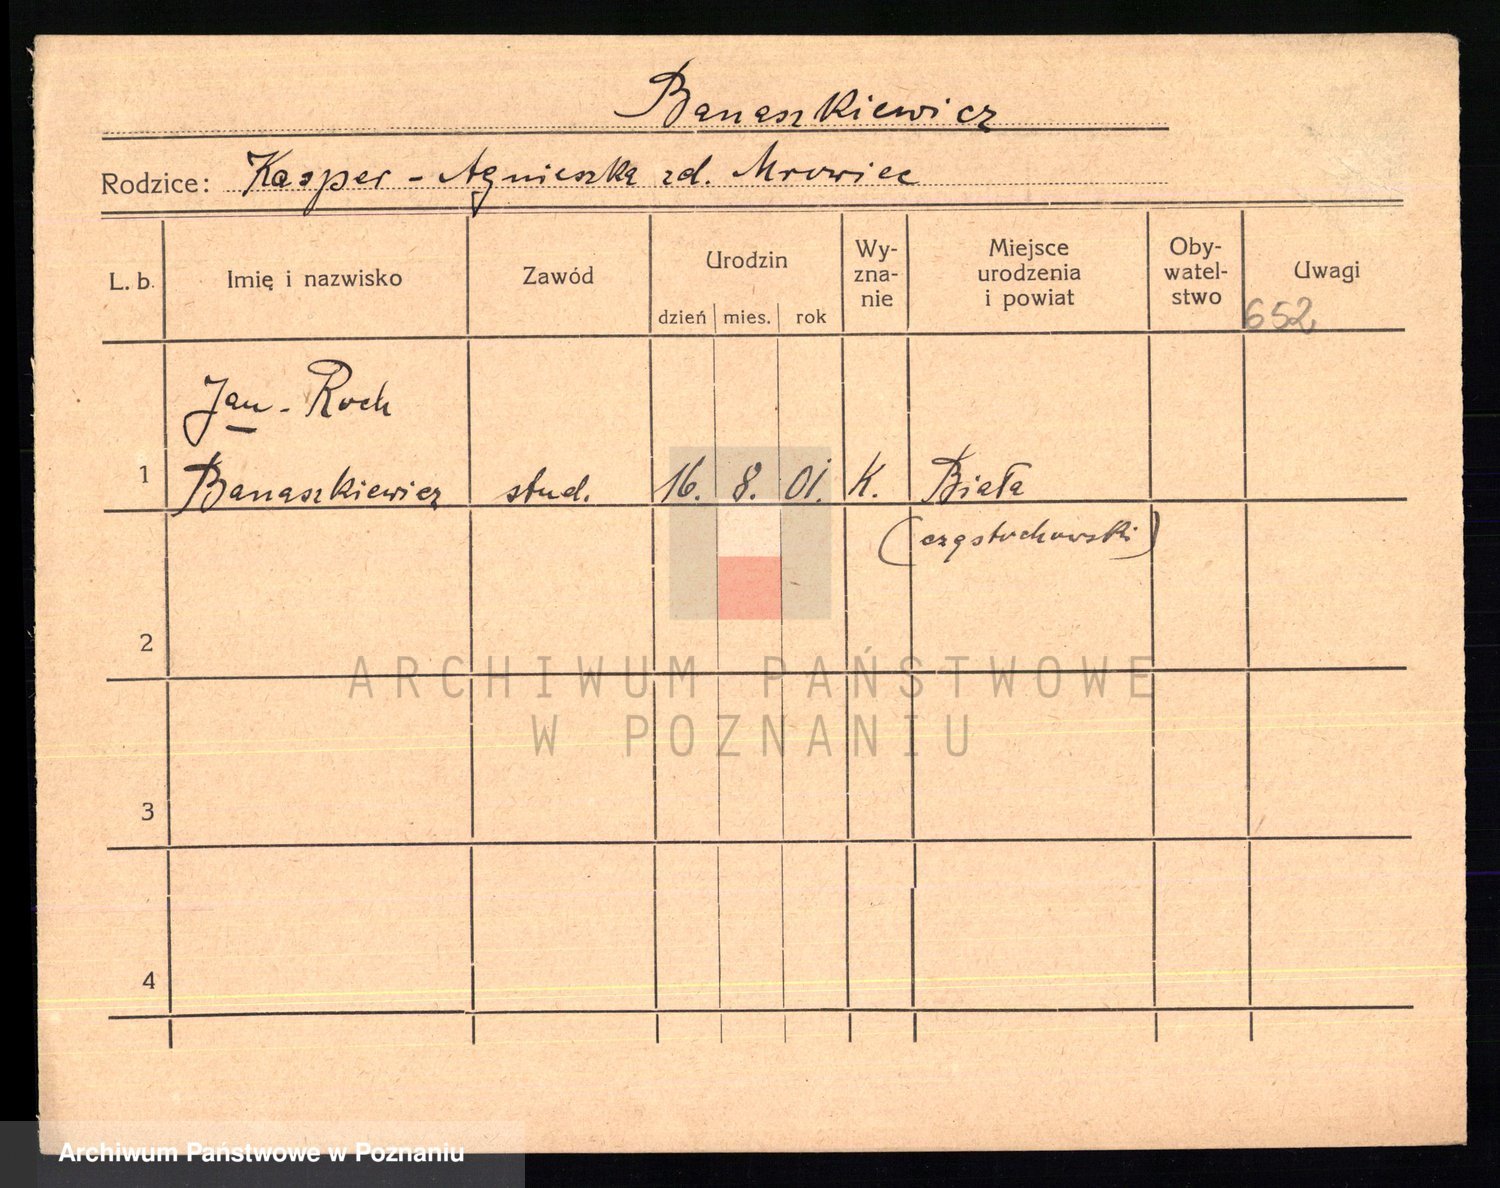 Banaszkiewicz
Rodzice: Kasper - Agnieszka zd. Mrowiec
L. b. Imię i nazwisko Zawód Urodzin dzień mies. rok Wy-zna-nie Miejsce urodzenia i powiat Oby-watel-stwo Uwagi
652
Jan - Roch
1 Banaszkiewicz stud. 16. 8. 01. K. Biała
(częstochowski)
2
ARCHIWUM PAŃSTWOWE
W POZNANIU
3
4
Archiwum Państwowe w Poznaniu